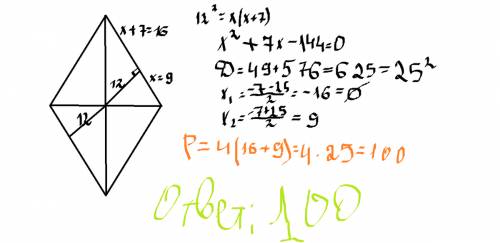 x+7=16
12
x=9
12
12² = x(x+7)
x² + 7x - 144 = 0
D = 49 + 576 = 625 = 25²
x₁ = -7-25/2 = -16 = ∅
x₂ = -7+25/2 = 9
P = 4(16+9) = 4·25 = 100
ответ: 100